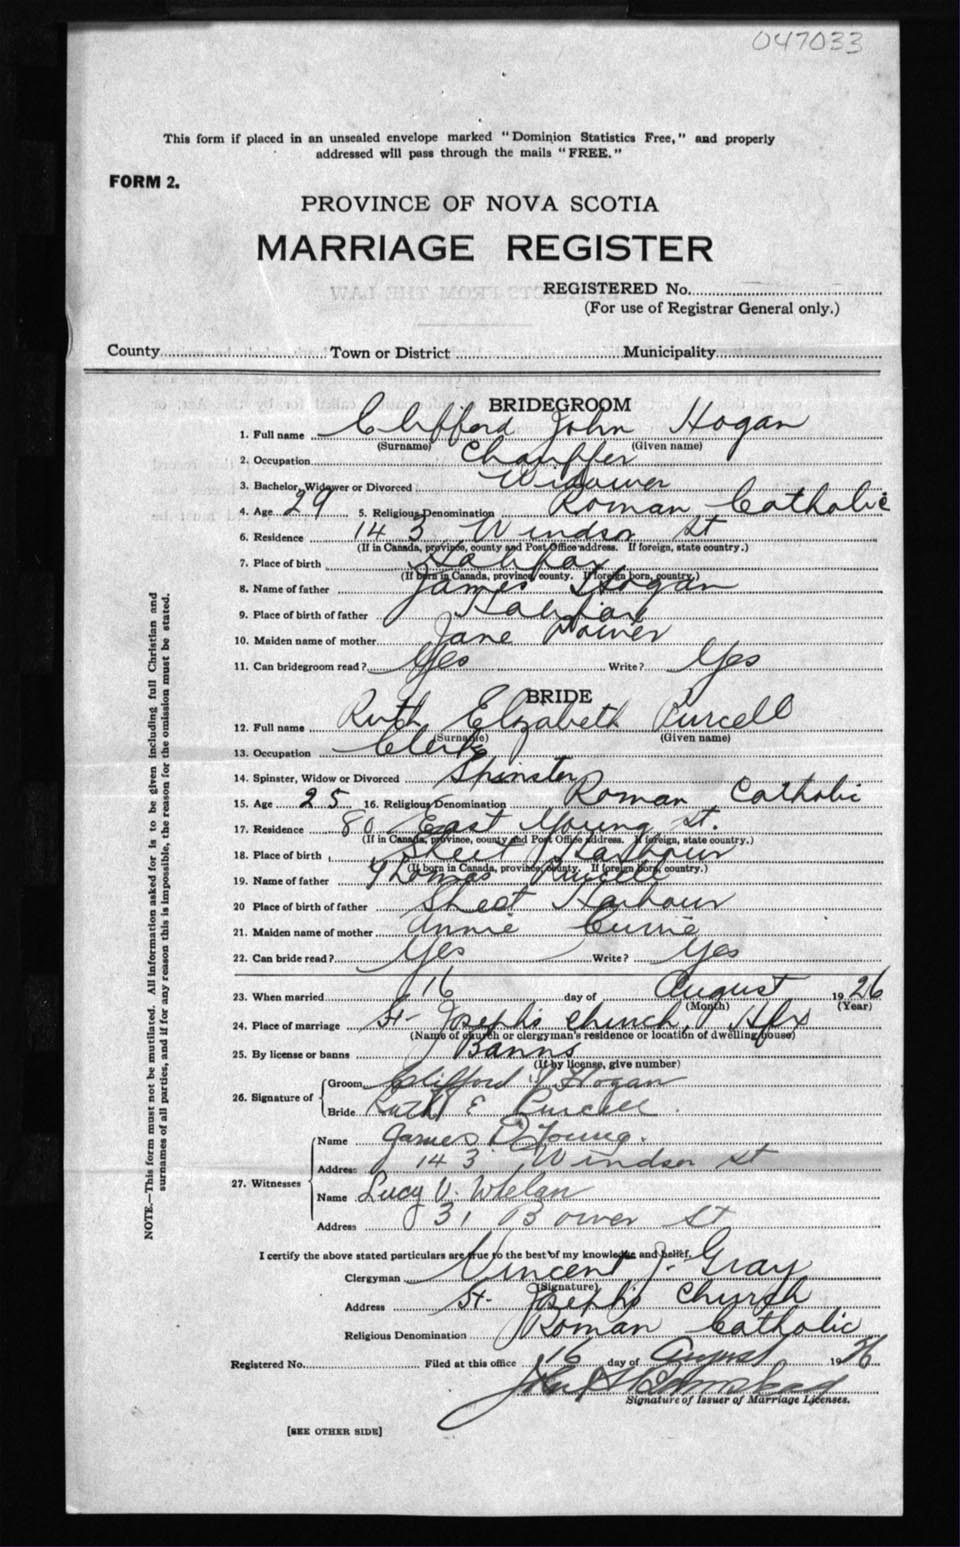 047033
This form if placed in an unsealed envelope marked "Dominion Statistics Free," and properly
addressed will pass through the mails "FREE."
FORM 2.
PROVINCE OF NOVA SCOTIA
MARRIAGE REGISTER
REGISTERED No.
(For use of Registrar General only.)
County Town or District Municipality
BRIDEGROOM
1. Full name Clifford John Hogan
(Surname) (Given name)
2. Occupation Chauffer
3. Bachelor, Widower or Divorced Widower
4. Age 29 5. Religious Denomination Roman Catholic
6. Residence 143 Windsor St
(If in Canada, province, county and Post Office address. If foreign, state country.)
7. Place of birth Halifax
(If born in Canada, province, county. If foreign born, country.)
8. Name of father James Hogan
9. Place of birth of father Halifax
10. Maiden name of mother Jane
11. Can bridegroom read? Yes Write? Yes
BRIDE
12. Full name Ruth Elizabeth Purcell
(Surname) (Given name)
13. Occupation Clerk
14. Spinster, Widow or Divorced Spinster
15. Age 25 16. Religious Denomination Roman Catholic
17. Residence 80 East Young St.
(If in Canada, province, county and Post Office address. If foreign, state country.)
18. Place of birth Sheet Harbour
(If born in Canada, province, county. If foreign born, country.)
19. Name of father Thomas Purcell
20 Place of birth of father Sheet Harbour
21. Maiden name of mother Annie Currie
22. Can bride read? Yes Write? Yes
23. When married 16 day of August 1926
(Month) (Year)
24. Place of marriage St. Joseph's Church, Hfx
(Name of church or clergyman's residence or location of dwelling house)
25. By license or banns Banns
(If by license, give number)
26. Signature of
Groom Clifford J Hogan
Bride Ruth E Purcell.
27. Witnesses
Name James Young.
Address 143 Windsor St
Name Lucy V. Whelan
Address 31 Bower St
I certify the above stated particulars are true to the best of my knowledge and belief.
Clergyman Vincent J. Gray
(Signature)
Address St. Joseph's Church
Religious Denomination Roman Catholic
Registered No. Filed at this office 16 day of August 1926
John
Signature of Issuer of Marriage Licenses.
[SEE OTHER SIDE]
NOTE.—This form must not be mutilated. All information asked for is to be given including full Christian and
surnames of all parties, and if for any reason this is impossible, the reason for the omission must be stated.